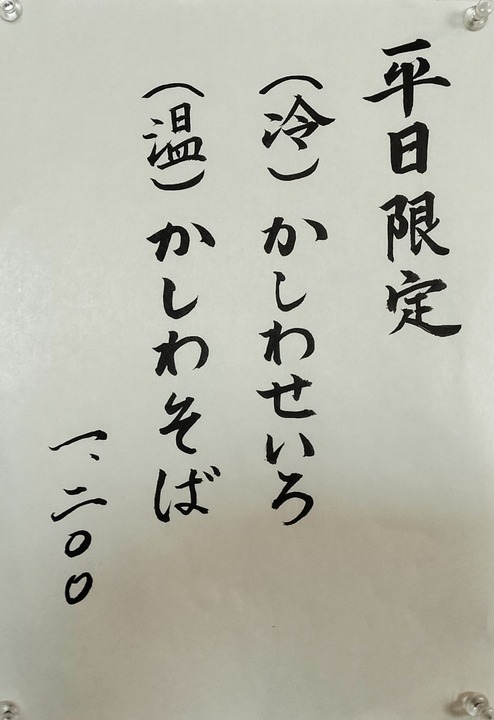 平日限定
(冷)かしわせいろ
(温)かしわそば
一、二〇〇